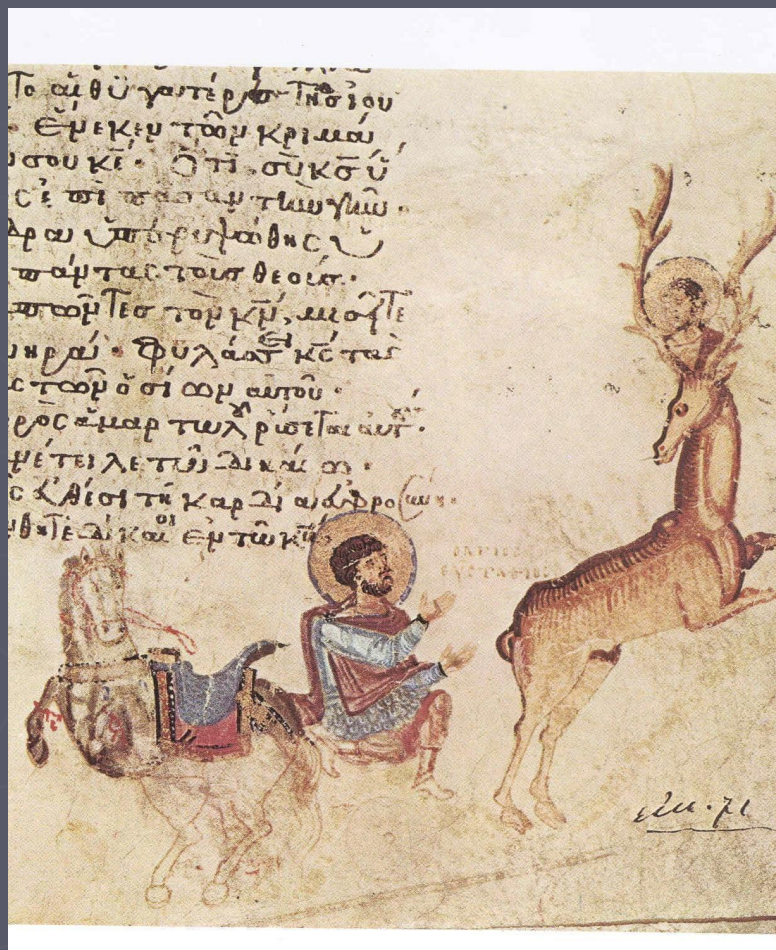 το αἱ θυγατέρες τῆς ἰου
ἕνεκεν τῶν κριμά
σου κε· Ὅτι σὺ κς ὕ
ς ἐπὶ πᾶσαν τὴν γῆν·
δρα ὑπερυψώθης ὑ
πάντας τοὺς θεούς·
πῶντες τὸν κν, μισεῖτε
νηρά· Φυλάσσει κς τὰς
ς τῶν ὁσίων αὐτοῦ·
ρὸς ἁμαρτωλῶν ῥύσεται αὐτ
νέτειλε τῶ δικαίω·
ς εὐθέσι τῆ καρδία εὐφροσύνη·
νθητε δίκαιοι ἐν τῶ κω
Ο ΑΓΙΟΣ
ΕΥΣΤΑΘΙΟΣ
εἰκ. 71